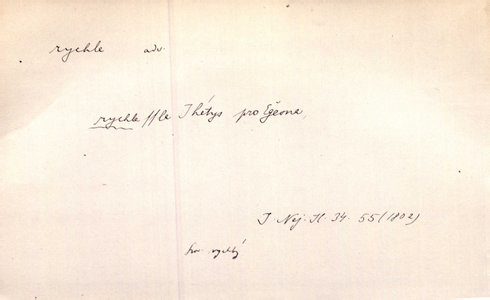 rychle adv.
rychle ſſla Thétys pro Egeona,
J. Nej. Il. 34. 55 (1802)
srov. rychlý